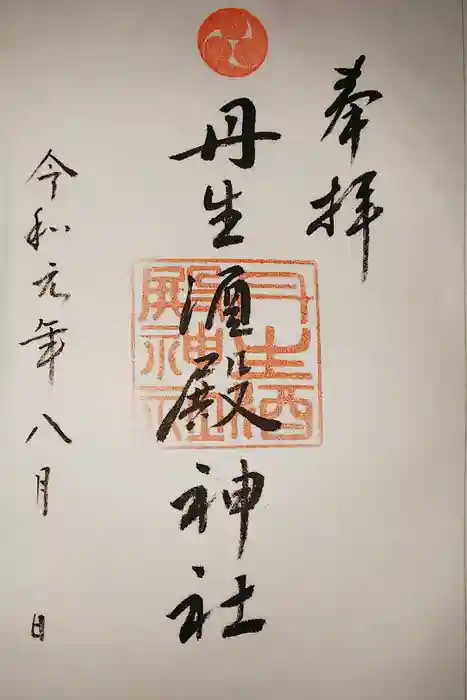 奉拝
丹生酒殿神社
令和元年八月 日
丹生酒殿神社